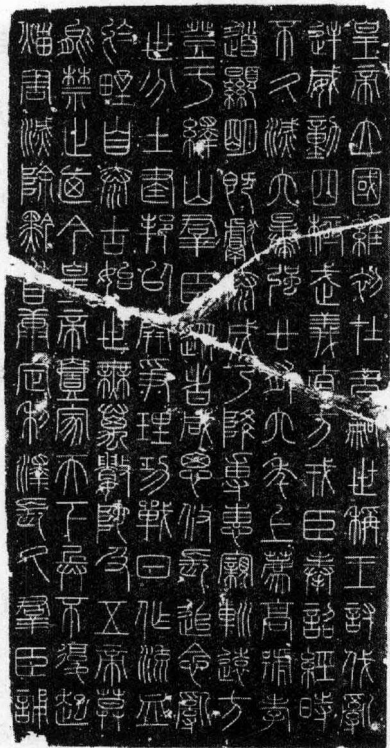 皇帝立國維初在昔嗣世稱王討伐亂
逆威動四極武義直方戎臣奉詔經時
不久滅六暴強廿有六年上薦高號孝
道顯明既獻泰成乃降專惠親䡅遠方
登于繹山群臣從者咸思攸長追念亂
世分土建邦以開爭理功戰日作流血
於野自泰古始世無萬數陀及五帝莫
能禁止廼今皇帝壹家天下兵不復起
災害滅除黔首康定利澤長久群臣誦